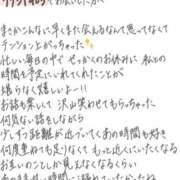 まさかこんな早くまた会えるなんて思ってなくて
テンション上がっちゃった
忙しい毎日の中で せっかくのお休みに 私との
時間を予定に入れてくれたことが
堪らなく嬉しいよー!!
お話も楽しくて 沢山笑わせてもらっちゃった
何気ない話しながら
少しずつ距離が近づいてくあの時間も好き
何度重ねても足りなくて もっと近くにいたくなる
お互いのことしか見えなくなるくらい